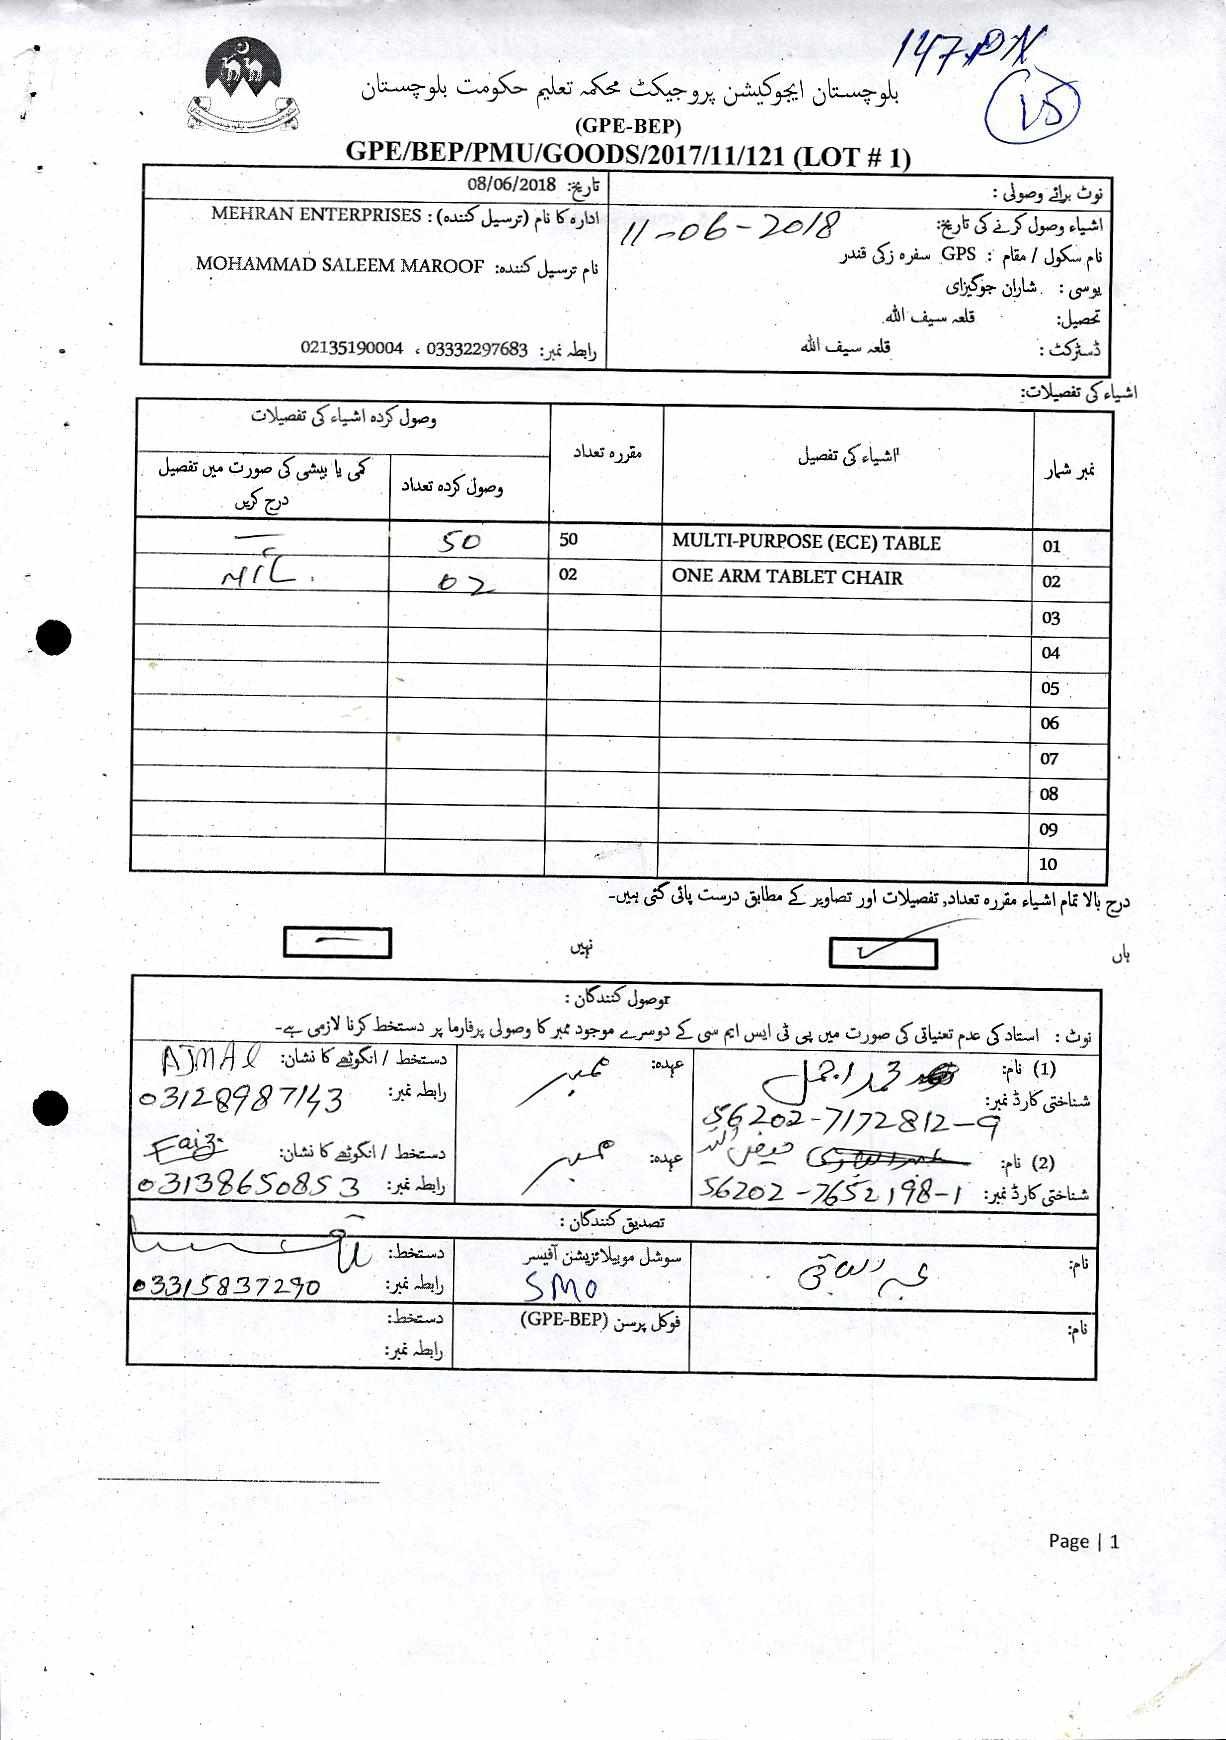 147.PN
15
بلوچستان ایجوکیشن پروجیکٹ محکمہ تعلیم حکومت بلوچستان
(GPE-BEP)
GPE/BEP/PMU/GOODS/2017/11/121 (LOT # 1)
نوٹ برائے وصولی :
اشیاء وصول کرنے کی تاریخ: 11-06-2018
نام سکول / مقام : GPS سفرہ زکی قندر
یوسی : شاران جوگیزای
تحصیل: قلعہ سیف اللہ
ڈسٹرکٹ : قلعہ سیف اللہ
تاریخ: 08/06/2018
ادارہ کا نام (ترسیل کنندہ) : MEHRAN ENTERPRISES
نام ترسیل کنندہ: MOHAMMAD SALEEM MAROOF
رابطہ نمبر: 03332297683 ، 02135190004
اشیاء کی تفصیلات:
نمبر شمار اشیاء کی تفصیل مقررہ تعداد وصول کردہ اشیاء کی تفصیلات
وصول کردہ تعداد کمی یا بیشی کی صورت میں تفصیل درج کریں
01 MULTI-PURPOSE (ECE) TABLE 50 50 —
02 ONE ARM TABLET CHAIR 02 02 NIL.
03
04
05
06
07
08
09
10
درج بالا تمام اشیاء مقررہ تعداد, تفصیلات اور تصاویر کے مطابق درست پائی گئی ہیں۔
ہاں ✓ نہیں —
وصول کنندگان :
نوٹ : استاد کی عدم تعنیاتی کی صورت میں پی ٹی ایس ایم سی کے دوسرے موجود ممبر کا وصولی پرفارما پر دستخط کرنا لازمی ہے۔
(1) نام: محمد اجمل عہدہ: ممبر دستخط / انگوٹھے کا نشان: AJMAL
شناختی کارڈ نمبر: 56202-7172812-9 رابطہ نمبر: 03128987143
(2) نام: فیض اللہ عہدہ: ممبر دستخط / انگوٹھے کا نشان: Faiz
شناختی کارڈ نمبر: 56202-7652198-1 رابطہ نمبر: 03138650853
تصدیق کنندگان :
نام: عبدالباقی سوشل موبیلائزیشن آفیسر دستخط:
SMO رابطہ نمبر: 03315837290
نام: فوکل پرسن (GPE-BEP) دستخط:
رابطہ نمبر:
Page | 1